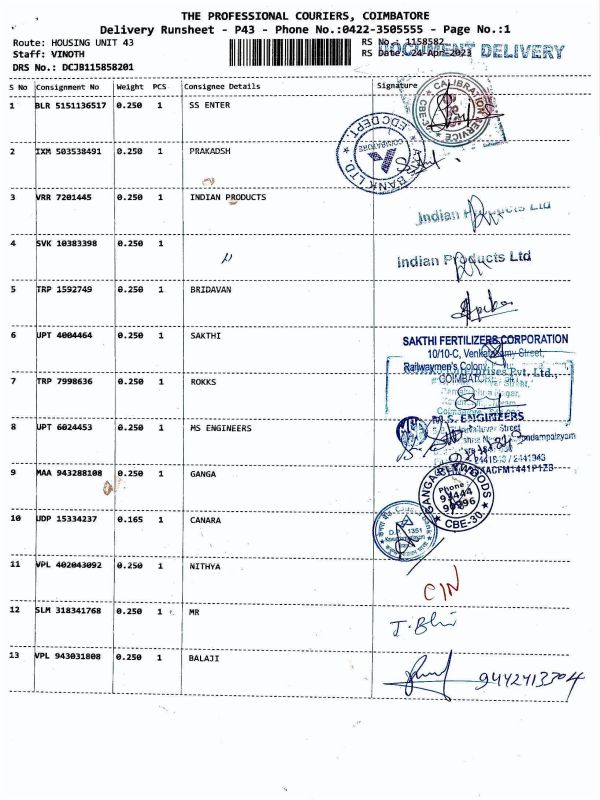 THE PROFESSIONAL COURIERS, COIMBATORE
Delivery Runsheet - P43 - Phone No.:0422-3505555 - Page No.:1
Route: HOUSING UNIT 43
RS No.: 1158582
Staff: VINOTH
RS Date: 24-Apr-2023
DOCUMENT DELIVERY
DRS No.: DCJB115858201
S No Consignment No Weight PCS Consignee Details Signature
1 BLR 5151136517 0.250 1 SS ENTER
CALIBRATION SERVICE CBE-
2 IXM 503538491 0.250 1 PRAKADSH
AXIS BANK LTD. EDC DEPT. COIMBATORE
3 VRR 7201445 0.250 1 INDIAN PRODUCTS
Indian Products Ltd
4 SVK 10383398 0.250 1
Indian Products Ltd
5 TRP 1592749 0.250 1 BRIDAVAN
6 UPT 4004464 0.250 1 SAKTHI
SAKTHI FERTILIZERS CORPORATION
10/10-C, Street,
Railwaymen's Colony,
COIMBATORE
7 TRP 7998636 0.250 1 ROKKS
Pvt. Ltd.,
8 UPT 6024453 0.250 1 MS ENGINEERS
M.S. ENGINEERS
Street
9 MAA 943288108 0.250 1 GANGA
GANGA PLYWOODS
Phone
CBE-30
10 UDP 15334237 0.165 1 CANARA
11 VPL 402043092 0.250 1 NITHYA
CIN
12 SLM 318341768 0.250 1 MR
13 VPL 943031808 0.250 1 BALAJI
9442413304